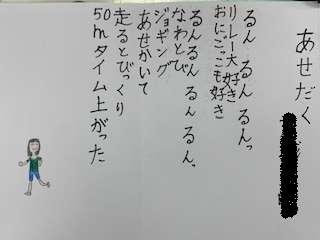 あせだく
るん るん るんっ
リレー大好き
おにごっこも好き
るんるん るん るんっ
なわとび
ジョギング
あせかいて
走るとびっくり
50mタイム上がった